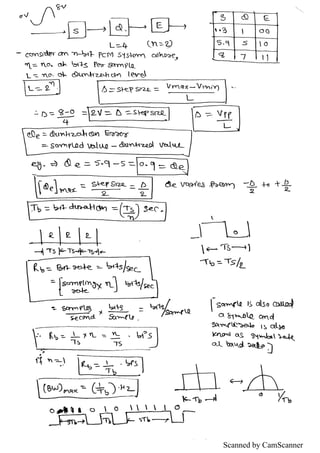 0V 8V → S → Q → E →
L=4 (n=2)
S Q E
1.3 1 00
5.9 5 10
8 7 11
- consider an n-bit PCM system where,
n = no. of bits per sample
L = no. of quantization level
L = 2ⁿ
Δ = step size = Vmax - Vmin / L
∴ Δ = 8-0 / 4 = 2V = Δ = step size
Δ = Vpp / L
Qe = quantization Error
= sampled value - quantized value
eg. ⇒ Qe = 5.9 - 5 = 0.9 = Qe
[Qe]max = step size / 2 = Δ / 2
Qe varies from -Δ/2 to +Δ/2
Tb = bit duration = (Ts/n) sec.
1 0
2 2 2
Ts Ts Ts
|← Ts →|
Tb = Ts/2
Rb = Bit rate = bits/sec
= [sampling rate × n] bits/sec
= samples/second × bits/sample = bits/sample
[sample is also called a symbol and sample rate is also known as symbol rate or baud rate.]
∴ Rb = 1/Ts × n = n/Ts . bits
if n=1 Rb = 1/Ts . bps
(BW)max = (1/Tb) . Hz
|← Tb →| 0 1/Tb
0 1 0 1 1 1 1 1 0
Tb Tb 5Tb
Scanned by CamScanner